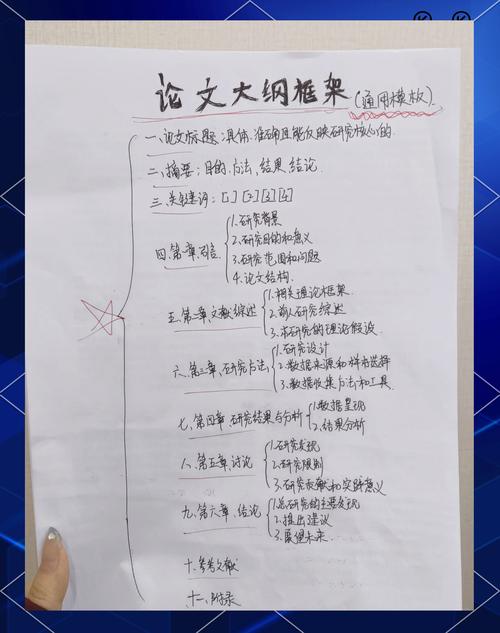 论文大纲框架(通用模板)
一、论文标题:具体、准确且能反映研究核心的.
二、摘要:目的、方法、结果、结论.
三、关键词:[1] [2] [3] [4]
四、第一章.引言
1.研究背景
2.研究目的和意义
3.研究范围和问题
4.论文结构.
五、第二章.文献综述
1.相关理论框架.
2.前人研究综述
3.本研究的理论假设
六、第三章、研究方法
1.研究设计
2.数据来源和样本选择
3.数据收集方法和工具.
七、第四章 研究结果与分析
1.数据呈现
2.结果分析
八、第五章.讨论
1.研究发现
2.研究限制
3.研究贡献和实践意义
九、第六章、结论
1.总研究的主要发现
2.提出建议
3.展望未来.
十、参考文献
十一、附录